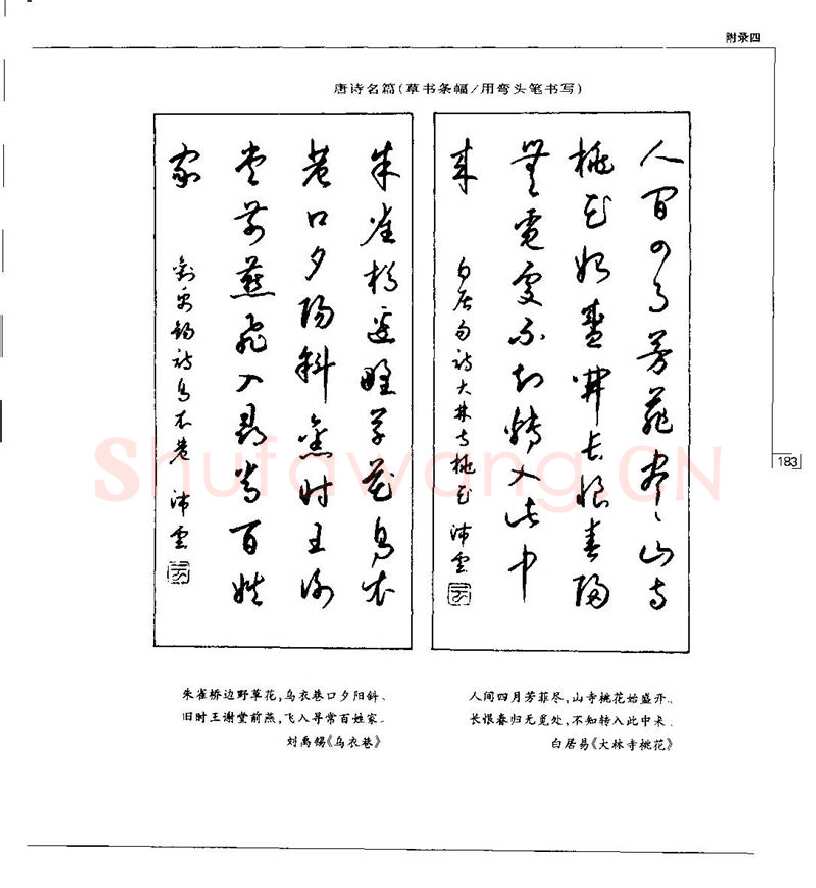 附录四
唐诗名篇(草书条幅/用弯头笔书写)
人间四月芳菲尽山寺
桃花始盛开长恨春归
無覓處不知转入此中
来
白居易诗大林寺桃花 沛雲
朱雀桥边野草花乌衣
巷口夕阳斜旧时王谢
堂前燕飞入寻常百姓
家
刘禹锡诗乌衣巷 沛雲
183
Shufawang.CN
朱雀桥边野草花,乌衣巷口夕阳斜。
旧时王谢堂前燕,飞入寻常百姓家。
刘禹锡《乌衣巷》
人间四月芳菲尽,山寺桃花始盛开。
长恨春归无觅处,不知转入此中来。
白居易《大林寺桃花》